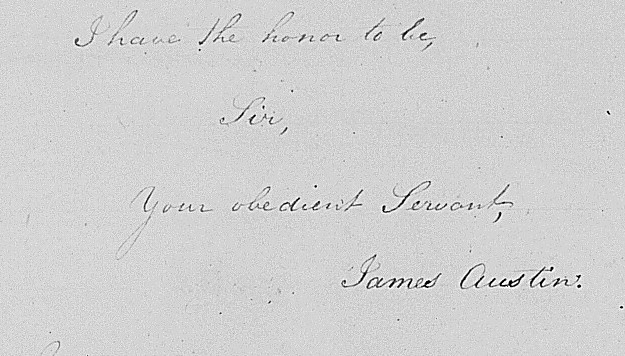 I have the honor to be,
Sir,
Your obedient Servant,
James Austin.